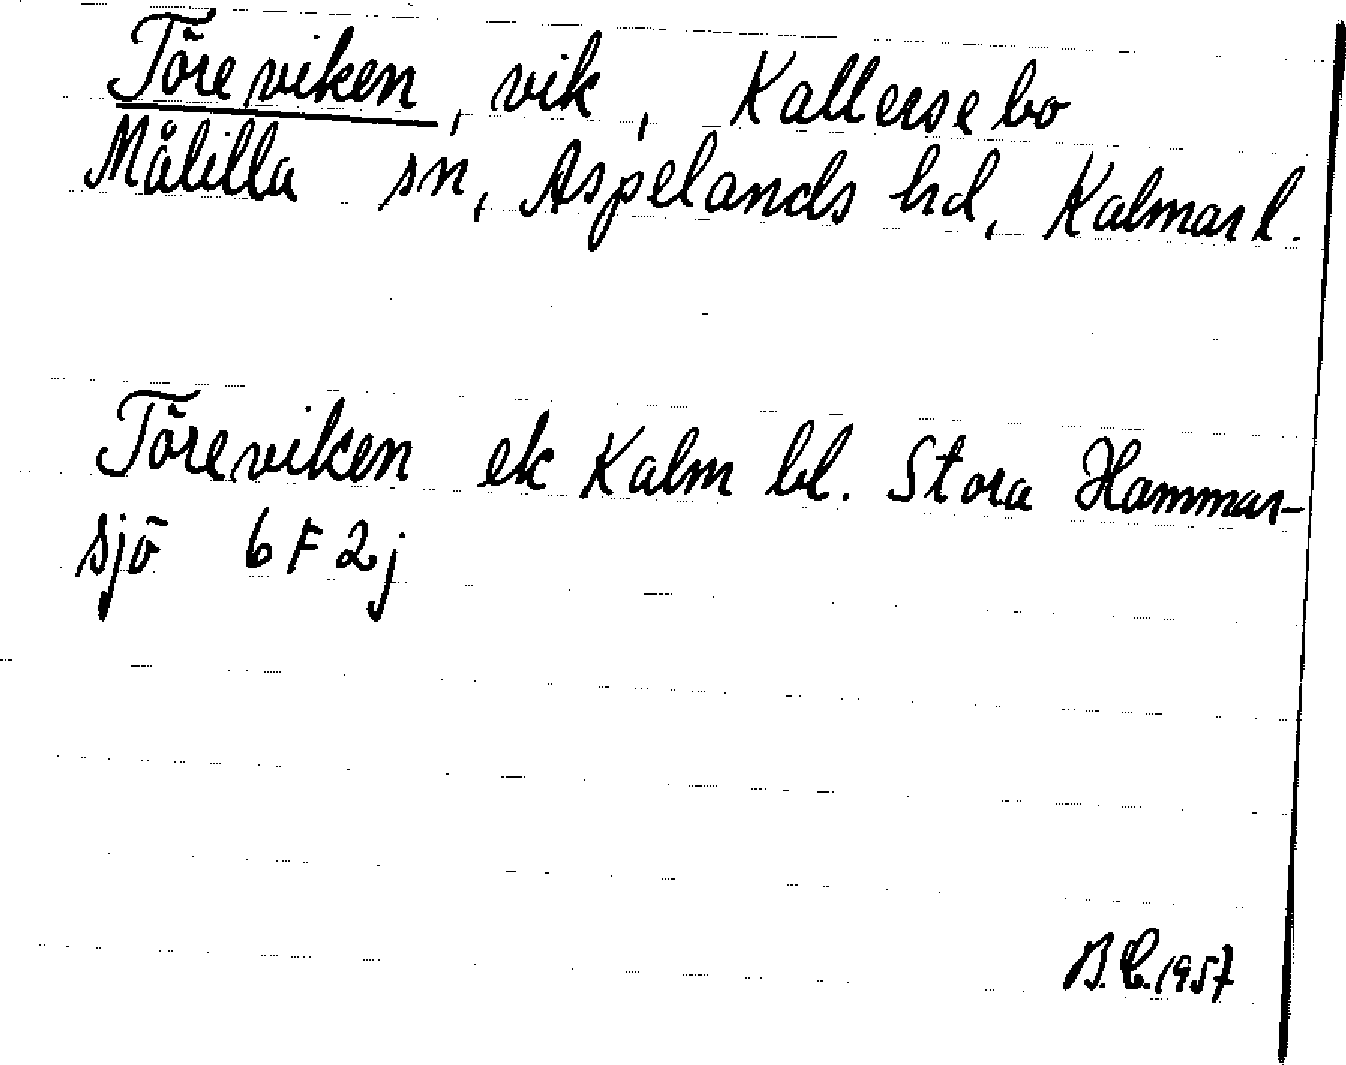 Töreviken, vik, Kallersebo
Målilla sn, Aspelands hd, Kalmar l.
Töreviken ek Kalm bl. Stora Hammar-
sjö 6F2j
B.C. 1957